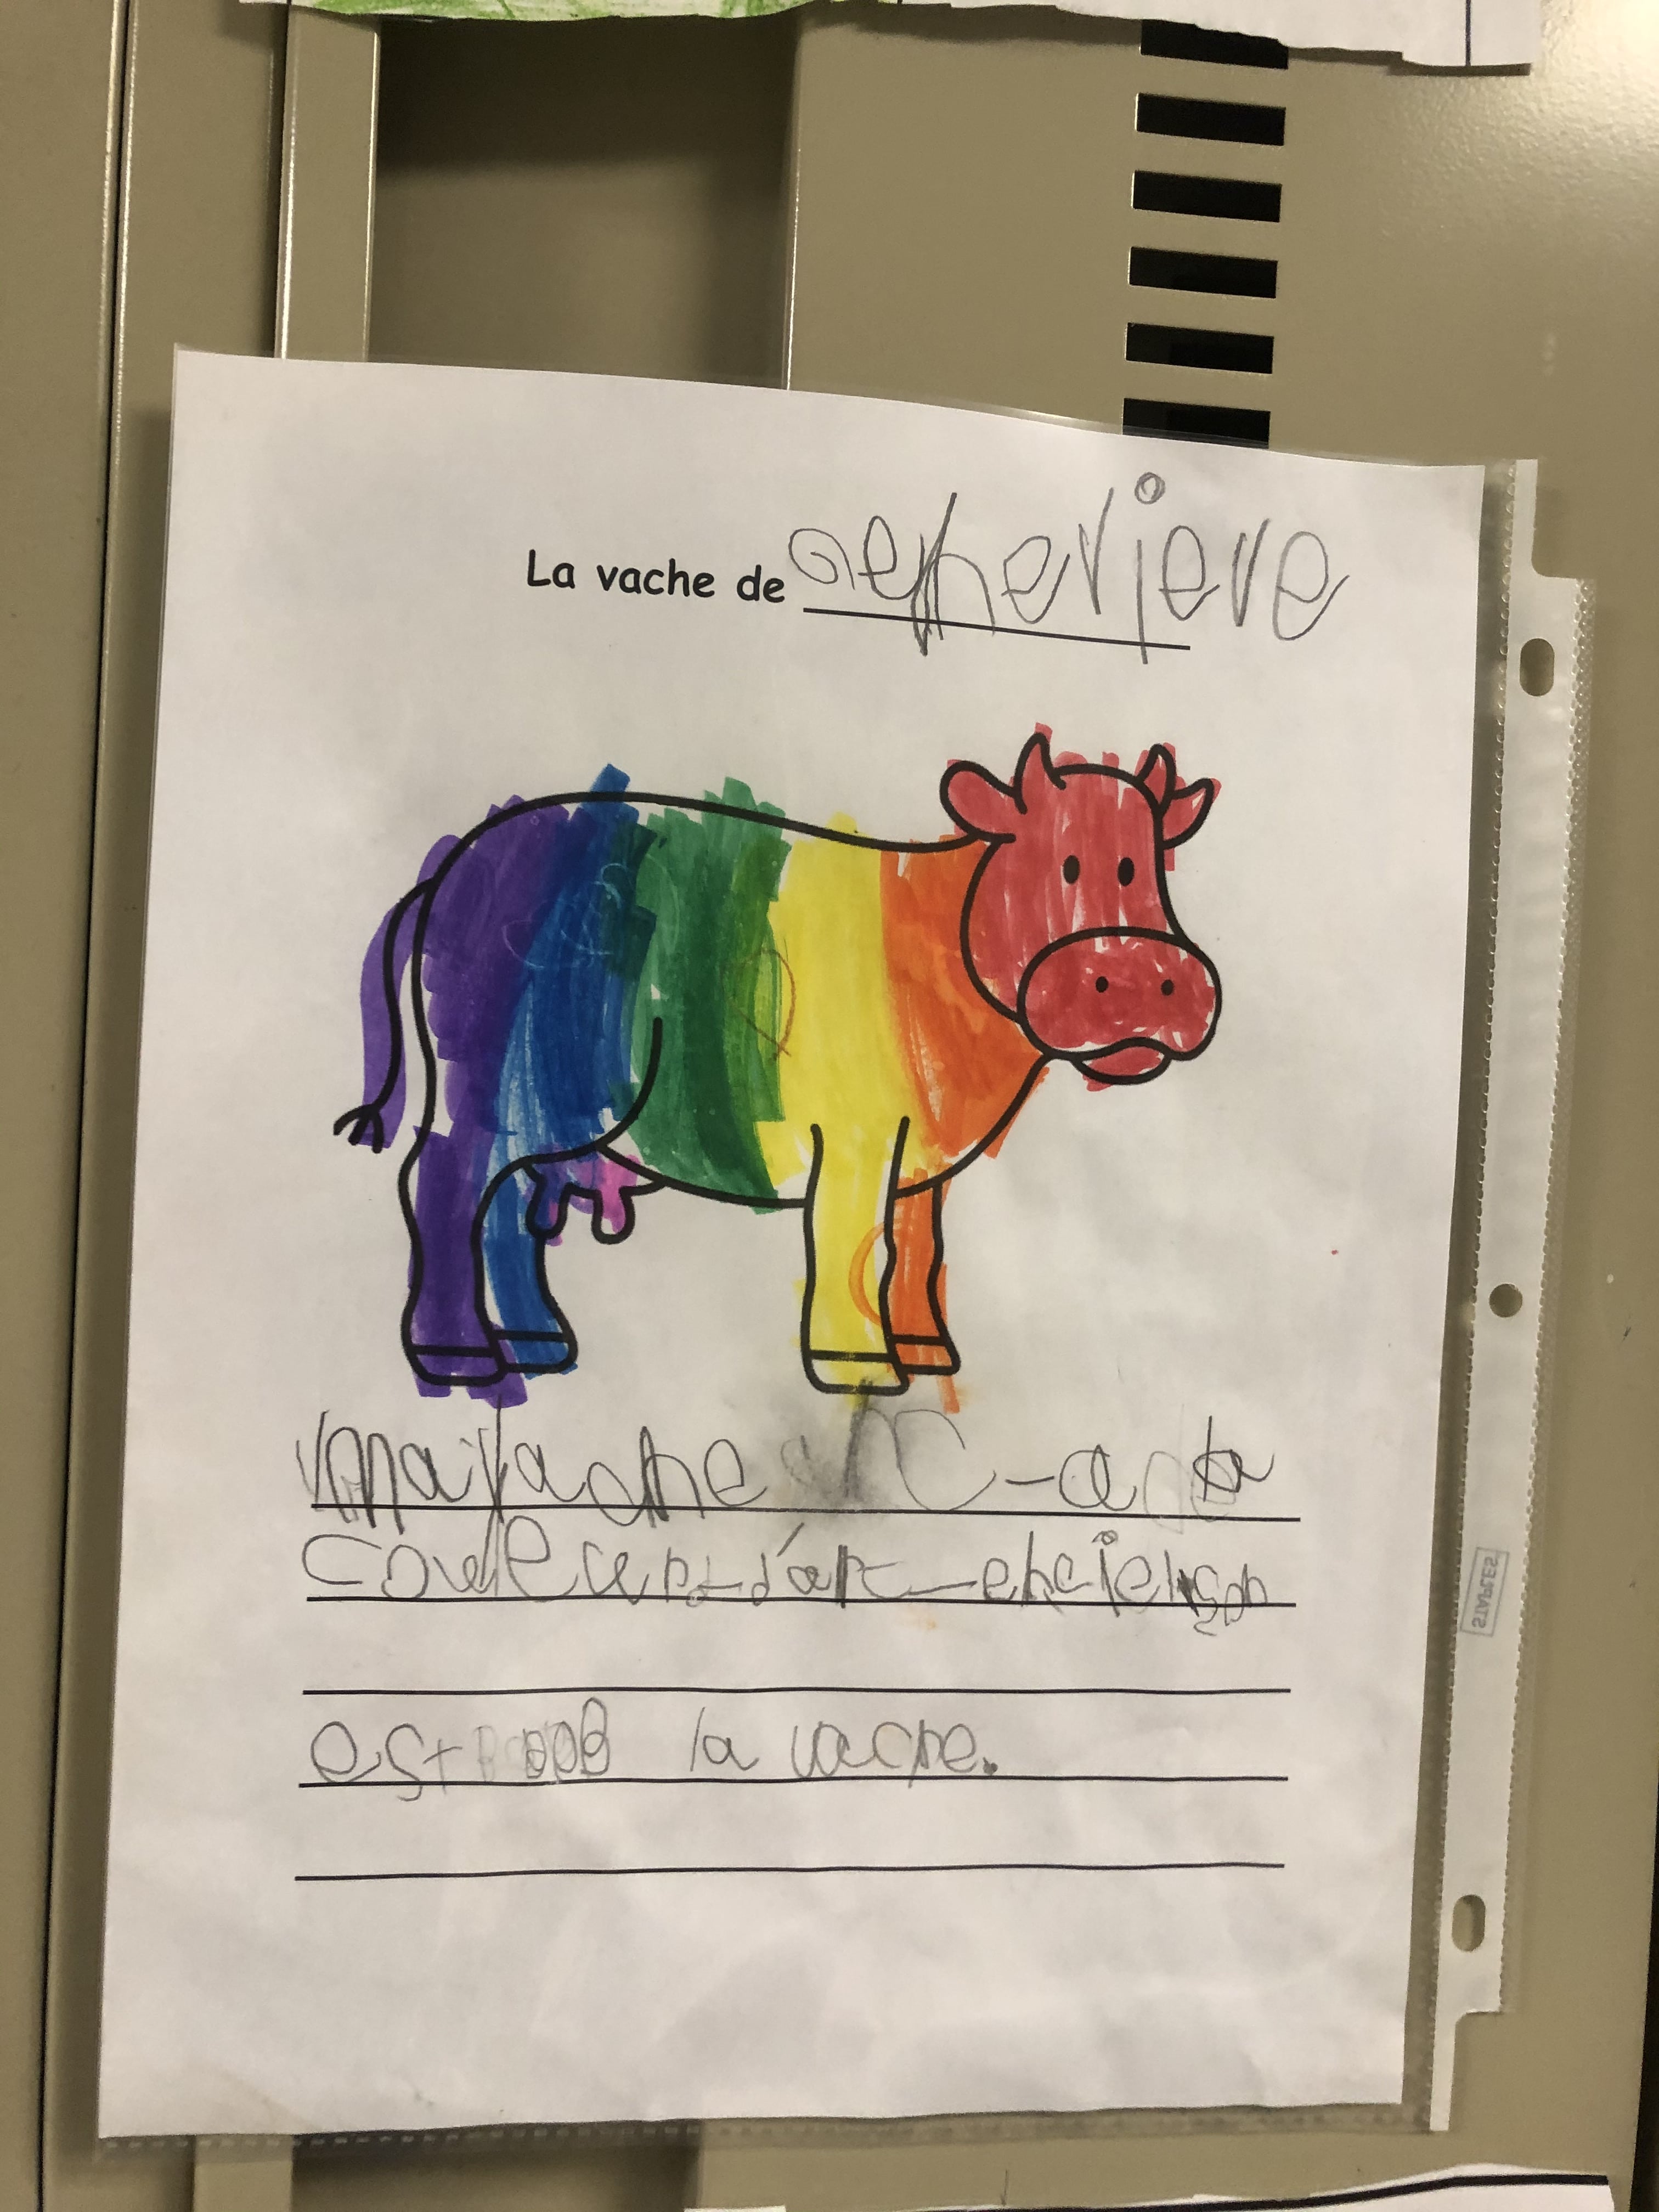 La vache de Genevieve
ma vache a la
couleur d'arc-en-ciel son
est la vache.
STAPLES